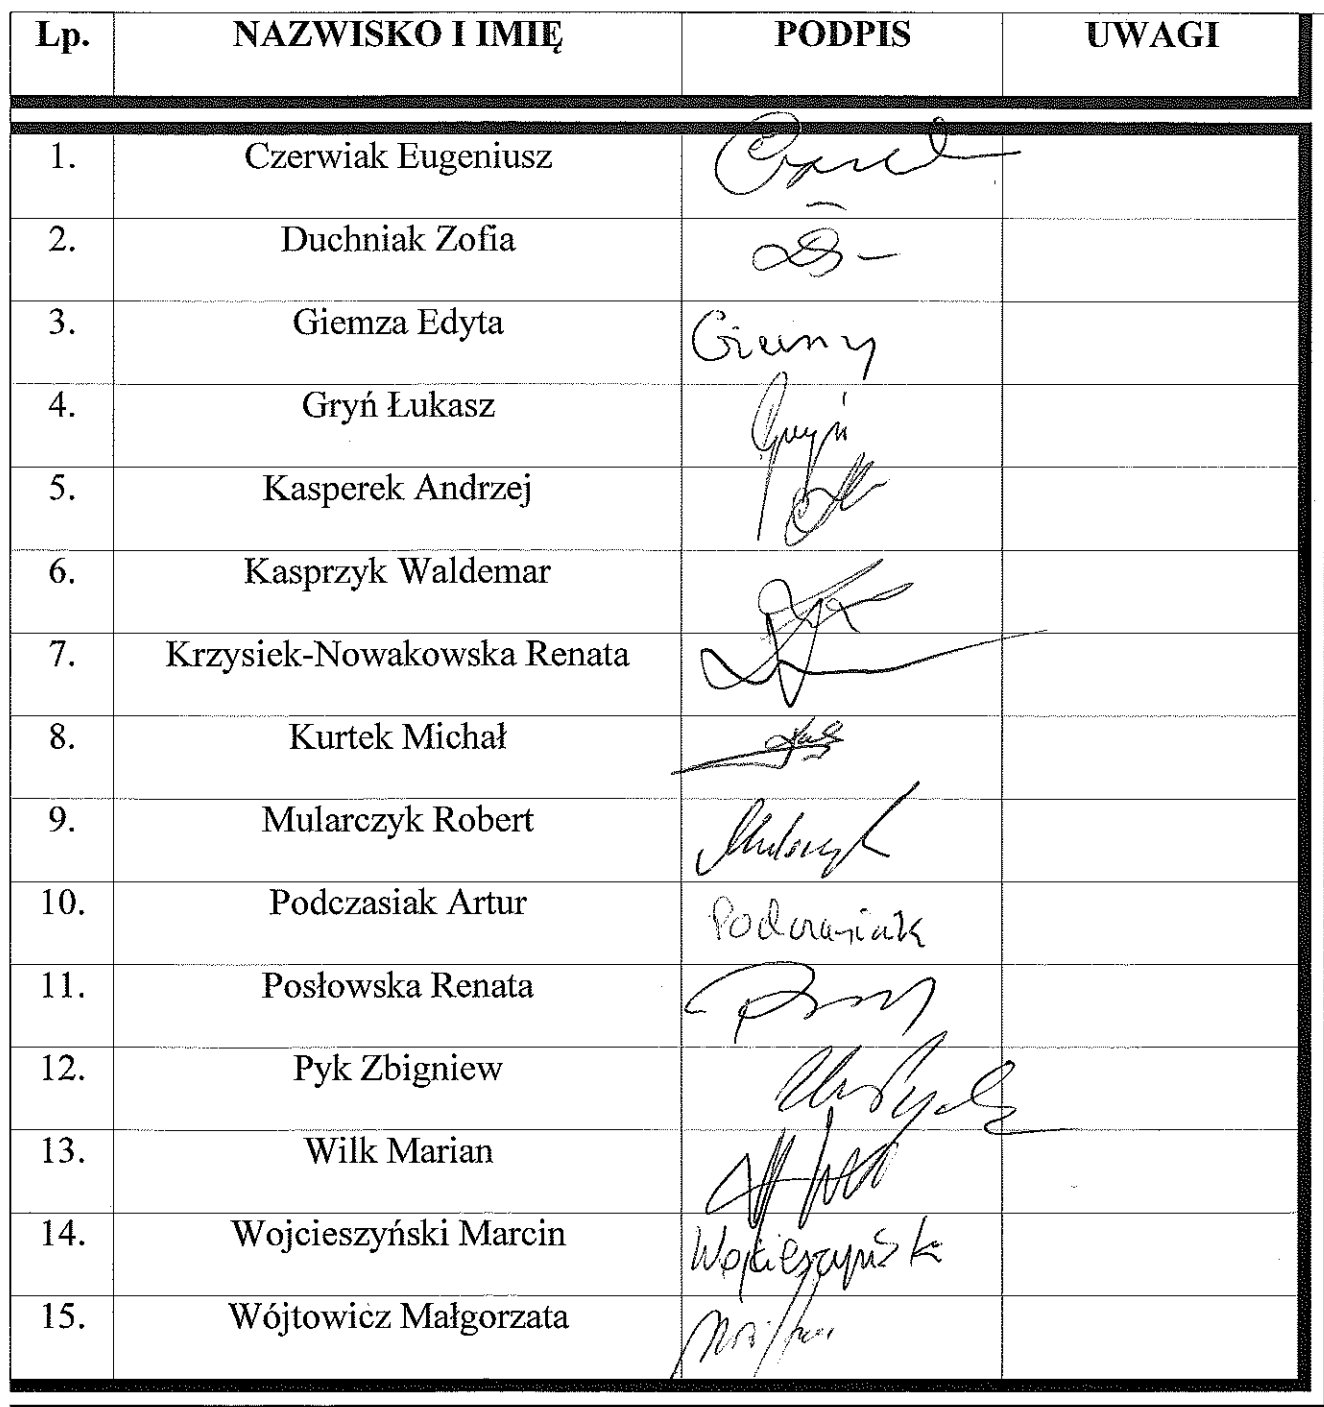 Lp. NAZWISKO I IMIĘ PODPIS UWAGI
1. Czerwiak Eugeniusz
2. Duchniak Zofia
3. Giemza Edyta
4. Gryń Łukasz Gryń
5. Kasperek Andrzej
6. Kasprzyk Waldemar
7. Krzysiek-Nowakowska Renata
8. Kurtek Michał
9. Mularczyk Robert Mularczyk
10. Podczasiak Artur Podczasiak
11. Posłowska Renata
12. Pyk Zbigniew
13. Wilk Marian
14. Wojcieszyński Marcin Wojcieszyński
15. Wójtowicz Małgorzata